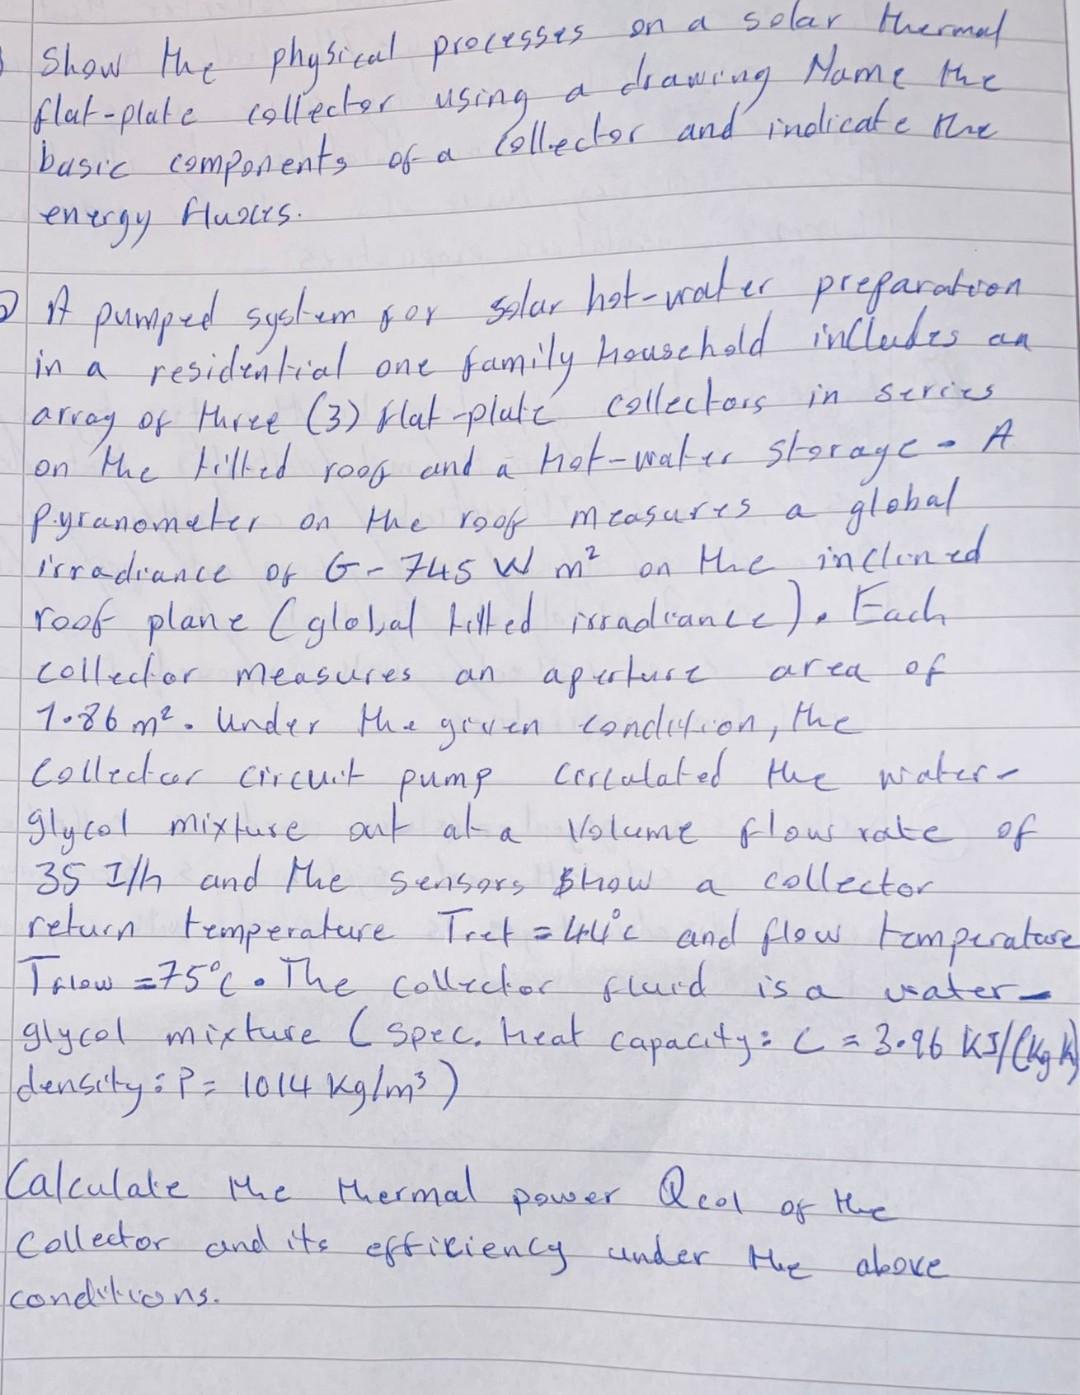 Show the physical processes on a solar thermal
flat-plate collector using a drawing Name the
basic components of a collector and indicate the
energy fluxes.
2) A pumped system for solar hot-water preparation
in a residential one family household includes an
array of three (3) flat-plate collectors in series
on the tilted roof and a Hot-water storage. A
pyranometer on the roof measures a global
irradiance of G- 745 W m² on the inclined
roof plane (global tilted irradiance). Each
collector measures an aperture area of
1.86 m². Under the given condition, the
Collector circuit pump circulated the water-
glycol mixture out at a Volume flow rate of
35 I/h and the sensors show a collector
return temperature Tret = 44°C and flow temperature
Tflow = 75°C. The collector fluid is a water-
glycol mixture (spec. heat capacity: C = 3.96 KJ/(kg K)
density: P = 1014 kg/m³)
Calculate the thermal power Qcol of the
Collector and its efficiency under the above
conditions.